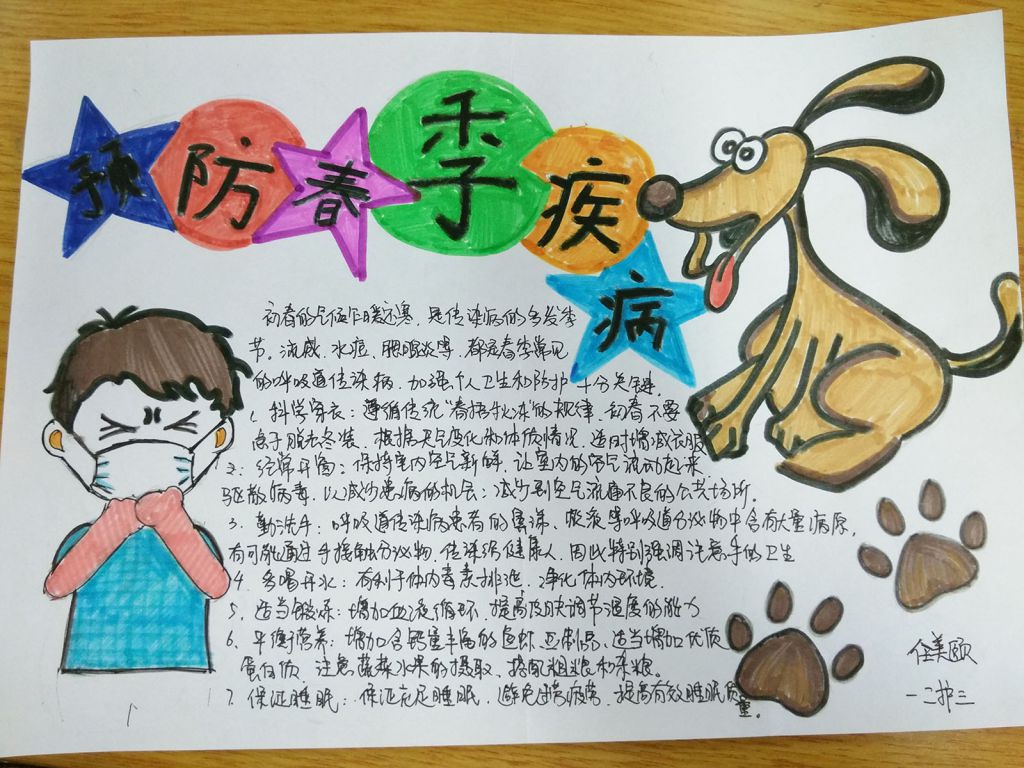 预防春季疾病
初春的气候乍暖还寒，是传染病的多发季
节。流感、水痘、腮腺炎等，都是春季常见
的呼吸道传染病，加强个人卫生和防护十分关键。
1. 科学穿衣：遵循传统"春捂秋冻"的规律，初春不要
急于脱去冬装，根据天气变化和体质情况，适时增减衣服
2. 经常开窗：保持室内空气新鲜，让室内的空气流动起来
驱散病毒，以减少患病的机会；减少到空气流通不良的公共场所。
3. 勤洗手：呼吸道传染病患者的鼻涕、痰液等呼吸道分泌物中含有大量病原，
有可能通过手接触分泌物，传染给健康人，因此特别强调注意手的卫生
4. 多喝开水：有利于体内毒素排泄，净化体内环境.
5. 适当锻炼：增加血液循环，提高及时调节温度的能力
6. 平衡营养：增加含钙量丰富的鱼虾、豆制品、适当增加优质
蛋白质，注意蔬菜水果的摄取、搭配粗粮和杂粮。
7. 保证睡眠：保证充足睡眠，避免过劳疲劳，提高有效睡眠质量。
任美颐
一二护三